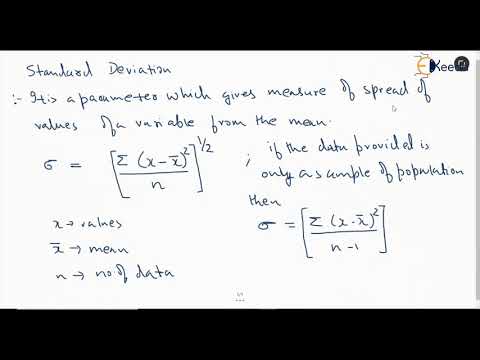 Standard Deviation
:- It is a parameter which gives measure of spread of
values of a variable from the mean.
σ = [Σ (x-x̄)²/n]^1/2
; if the data provided is
only a sample of population
then
σ = [Σ (x-x̄)²/n-1]
x → values
x̄ → mean
n → no of data